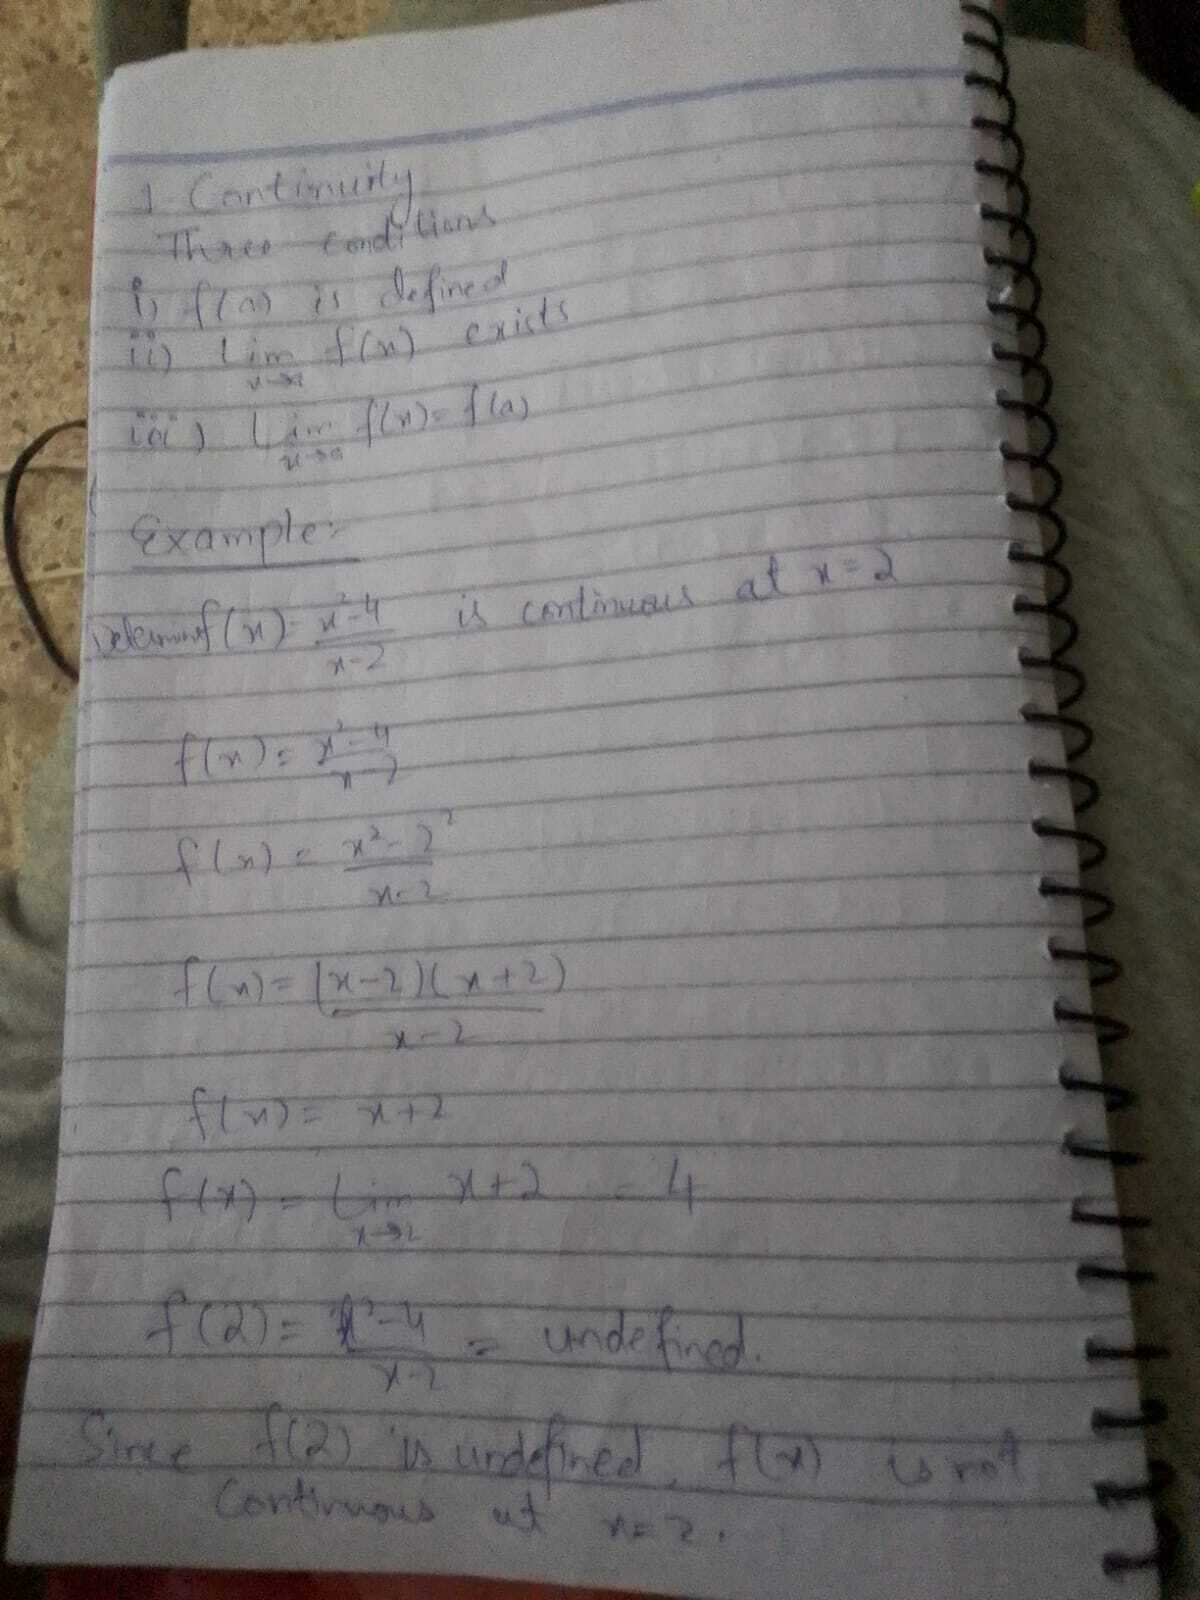 1. Continuity
Three conditions
i) f(a) is defined
ii) Lim f(x) exists
x→a
iii) Lim f(x) = f(a)
x→a
Example:-
Determine f(x) = x²-4 is continuous at x = 2
x-2
f(x) = x²-4
x-2
f(x) = x²-2²
x-2
f(x) = (x-2)(x+2)
x-2
f(x) = x+2
f(x) = Lim x+2 = 4
x→2
f(2) = x²-4 = undefined.
x-2
Since f(2) is undefined, f(x) is not
continuous at x=2.